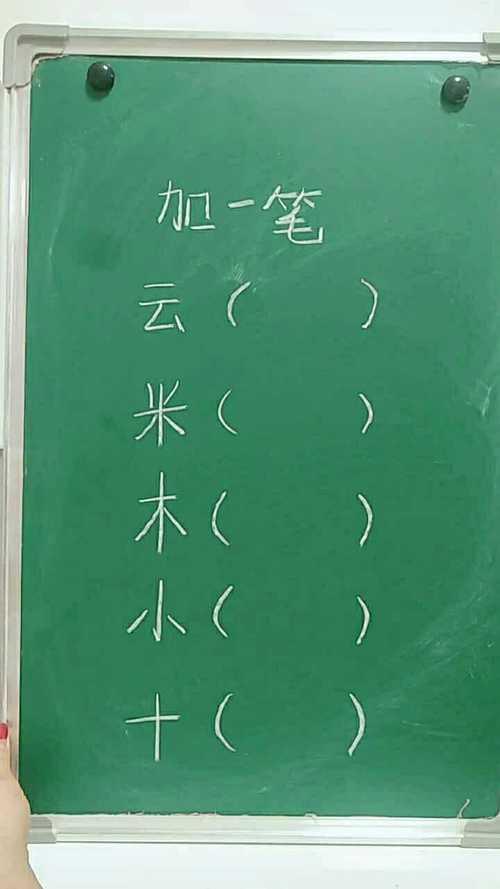 加一笔
云（ ）
米（ ）
木（ ）
小（ ）
十（ ）